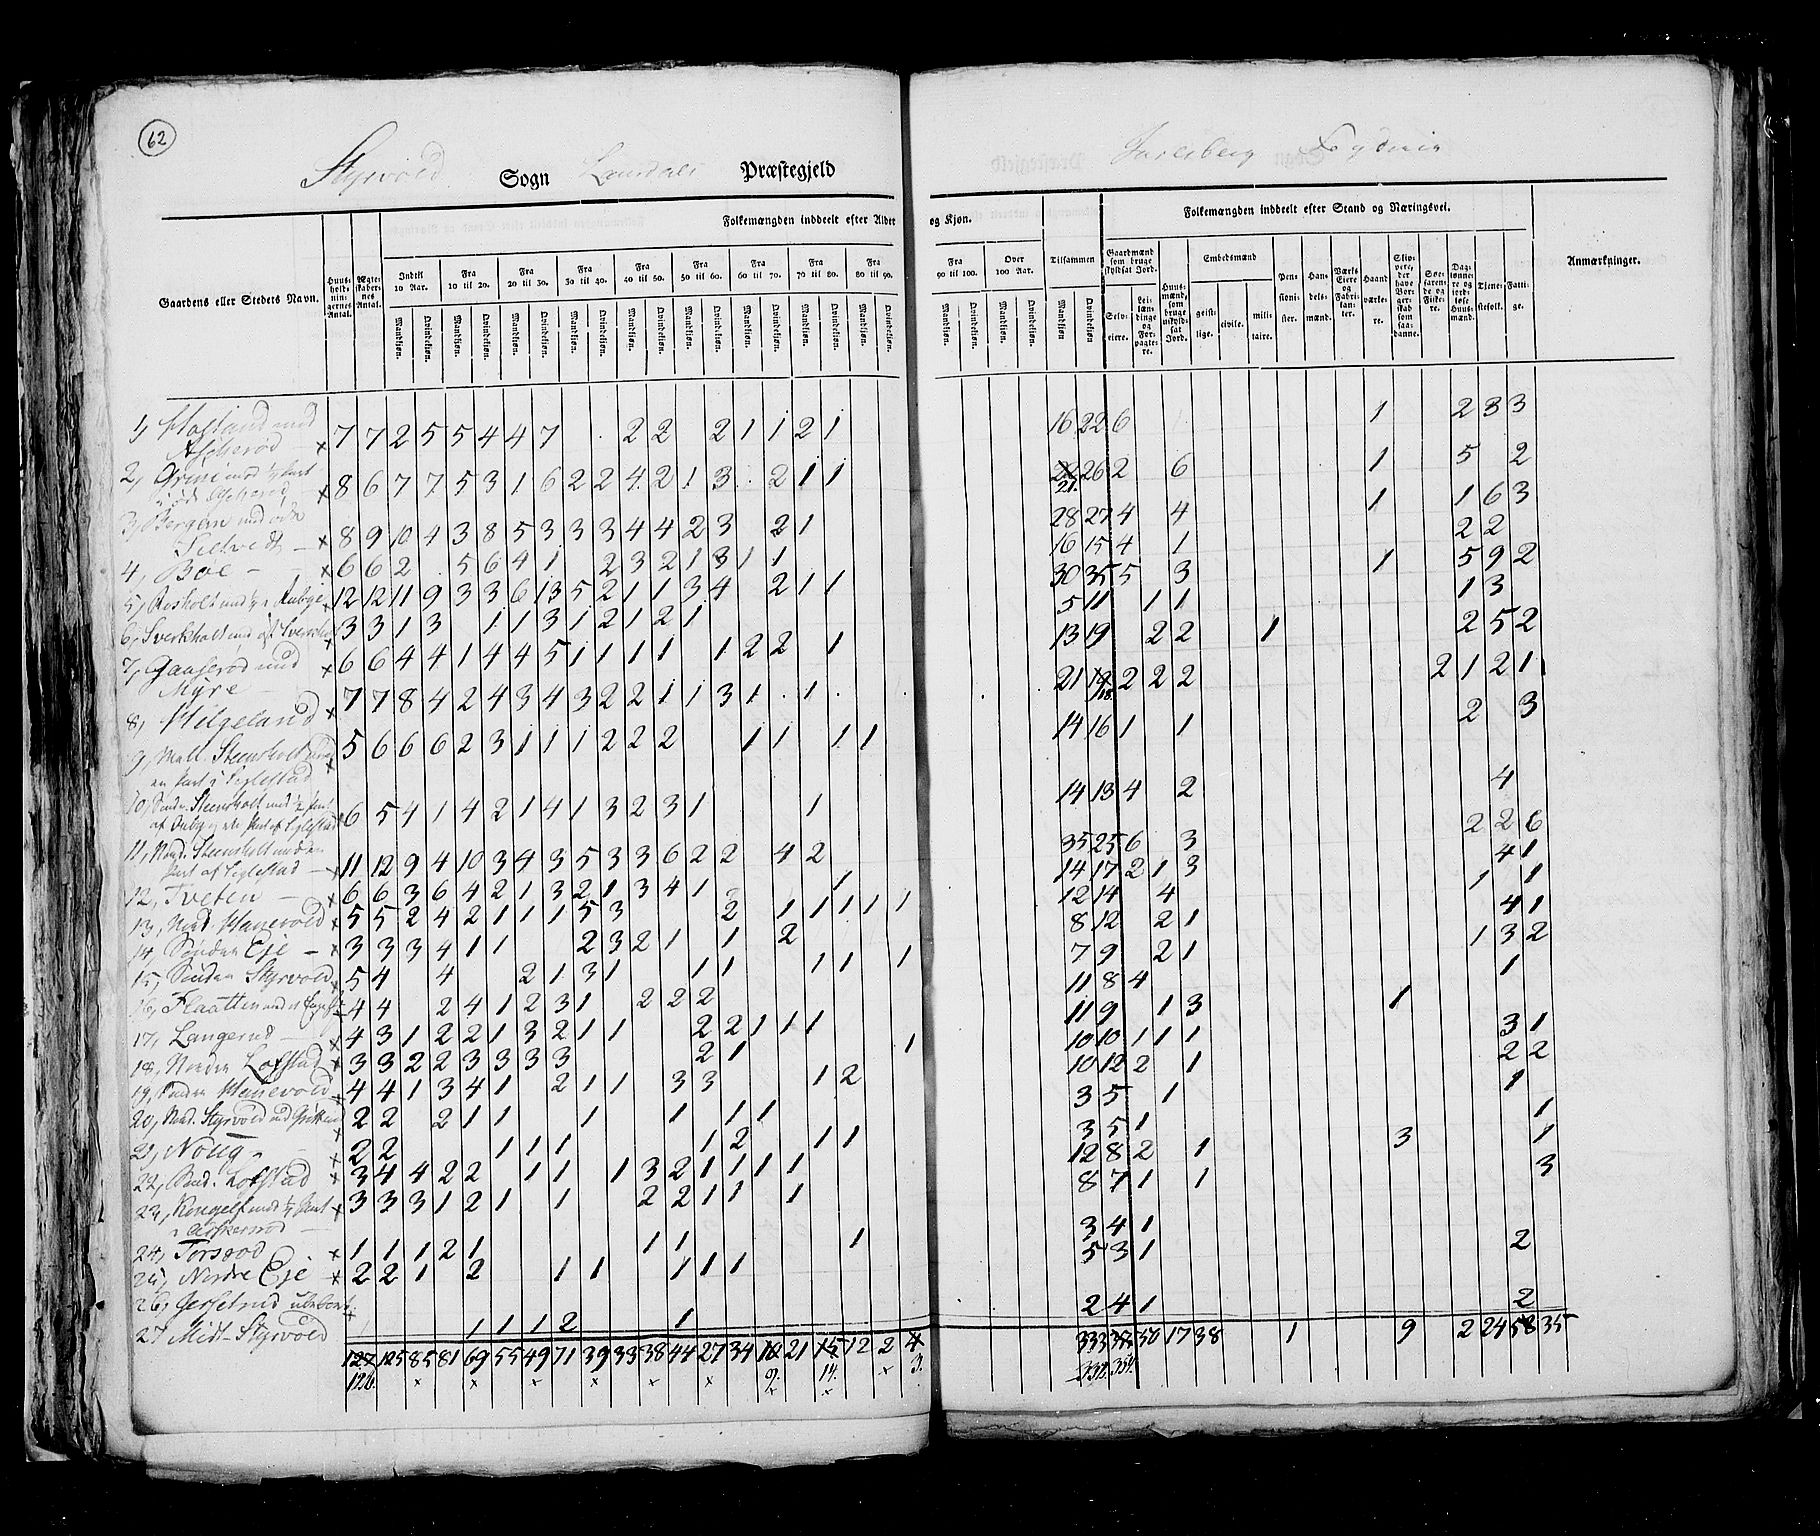 62
Styrvold Sogn Laurdals Præstegjeld
Jarlsberg Fogderie
Folkemængden inddeelt efter Alder og Kjøn.
Folkemængden inddeelt efter Stand og Næringsvei.
Gaardens eller Stedets Navn.
Huus-holdningernes Antal.
Ægteskabernes Antal.
Indtil 10 Aar.
Fra 10 til 20.
Fra 20 til 30.
Fra 30 til 40.
Fra 40 til 50.
Fra 50 til 60.
Fra 60 til 70.
Fra 70 til 80.
Fra 80 til 90.
Fra 90 til 100.
Over 100 Aar.
Tilsammen
Mandkjøn. Qvindekjøn.
Gaardmænd som bruge skyldsat Jord.
Selveiere.
Leilændinge og Forpagtere.
Huusmænd, som bruge uskyldsat Jord.
Embedsmænd
geistlige. civile. militaire.
Pensionister.
Handelsmænd.
Værks Eiere og Fabrikanter.
Haandværkere.
Tjenestefolk.
Fattige.
Anmærkninger.
1, Hofland med x 7 7 2 5 5 4 4 7 2 2 2 1 1 2 1 16 22 6 1 2 3 3
2, Grini med x 8 6 7 7 5 3 1 6 2 2 4 2 1 3 2 1 1 21. 26 2 6 1 5 2
3, Bergan med øde Tiltvedt x 8 9 10 4 3 8 5 3 3 3 4 4 2 3 2 1 28 27 4 4 1 1 6 3
4, Boe x 6 6 2 5 6 4 1 2 3 2 1 3 1 1 16 15 4 1 2 2
5, Rosholt x 12 12 11 9 3 3 6 13 5 2 1 1 3 4 2 1 1 30 35 5 3 1 5 9 2
6, Sverkholt x 3 3 1 3 1 1 3 1 2 1 2 1 5 11 1 1 1 3
7, Gaaserød med Myre x 6 6 4 4 1 4 4 5 1 1 1 1 1 2 2 1 13 19 2 2 1 2 5 2
8, Hilgeland x 7 7 8 4 2 4 3 4 3 2 2 1 1 3 1 1 21 18 2 2 2 2 1 2 1
9, Mell. Steensholt x 5 6 6 6 2 3 1 1 1 2 2 2 1 1 1 1 14 16 1 1 2 3
10, Søndr. Steensholt med x 6 5 4 1 4 2 1 4 1 3 2 3 1 1 14 13 4 2 4
11, Nord. Steensholt x 11 12 9 4 10 3 4 3 5 3 3 6 2 2 4 2 35 25 6 3 2 2 6
12, Tveten x 6 6 3 6 4 2 1 3 2 1 3 4 1 1 14 17 2 1 3 4 1
13, Nord. Hanevold x 5 5 2 4 2 1 1 1 5 3 2 1 1 1 1 1 12 14 4 1 1
14, Søndre Eje x 3 3 3 4 1 1 2 3 2 1 1 2 8 12 2 1 4 1
15, Søndre Styrvold x 5 4 4 2 1 3 1 1 1 1 1 1 7 9 2 1 1 3 2
16, Flaatten x 4 4 2 4 1 2 3 1 2 2 2 11 8 4 1
17, Langerud x 4 3 1 2 2 1 3 2 1 1 2 2 1 1 1 11 9 1 3 1
18, Nordre Lofstad x 3 3 2 2 3 3 3 3 2 1 1 10 10 1 1 1 3 1
19, Søndre Hanevold x 4 4 1 3 4 1 2 1 1 3 3 1 2 10 12 2 1 2 2
20, Nord. Styrvold x 2 2 2 1 1 1 1 1 1 3 5 1 1
21, Noug x 2 2 1 1 1 1 2 1 1 3 5 1 1
22, Sønd. Lofstad x 3 4 4 2 2 1 1 1 3 2 1 1 1 1 12 8 2 1 3 1
23, x 3 3 3 1 2 1 1 2 2 1 1 1 8 7 1 1 3
24, Torsrød x 1 1 1 2 1 1 1 1 3 4 1
25, Nordre Eje x 2 2 1 2 1 1 1 1 1 5 3 1 2
26, Jerpetrud ubeboet x
27 Midt-Styrvold 1 1 1 2 1 2 4 1 2
127 125 85 81 69 55 49 71 39 33 38 44 27 34 10 21 15 12 2 4 333 50 17 38 1 9 2 24 58 35
126. x x x x x x 9. x 14. x x 3.